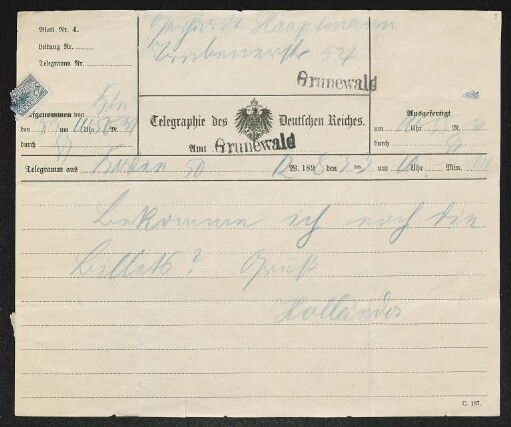 Blatt Nr. 4.
Leitung Nr.
Telegramm Nr.
Gerhardt Hauptmann
Trabenerstr 54
Grunewald
Aufgenommen von
den um Uhr M.
durch
Telegraphie des Deutschen Reiches.
Amt Grunewald
Ausgefertigt
um Uhr M.
durch
Telegramm aus 50 12 W. 189 den um Uhr Min.
Bekomme ich noch die
Billets? Gruß
Holländer
C. 187.